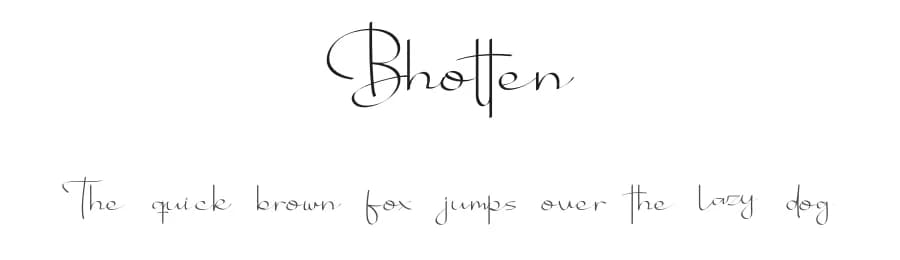 Bhotten
The quick brown fox jumps over the lazy dog